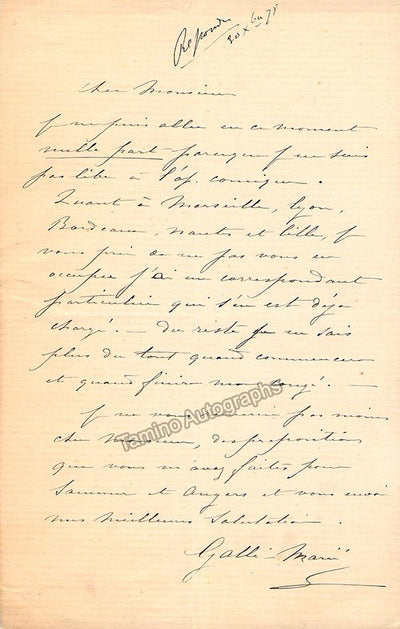 Répondu
20 xbre 78
Cher Monsieur
Je ne puis aller en ce moment
nulle part parceque je ne suis
pas libre à l'op. comique.
Quant à Marseille, Lyon,
Bordeaux, Nantes et Lille, je
vous prie de ne pas vous en
occuper j'ai un correspondant
particulier qui s'en est déjà
chargé. — Du reste je ne sais
plus du tout quand commencera
et quand finira mon congé. —
Je ne vous remercie pas moins
cher Monsieur, des propositions
que vous m'avez faites pour
Saumur et Angers et vous envoie
mes meilleures salutations.
Galli-Marié
Tamino Autographs